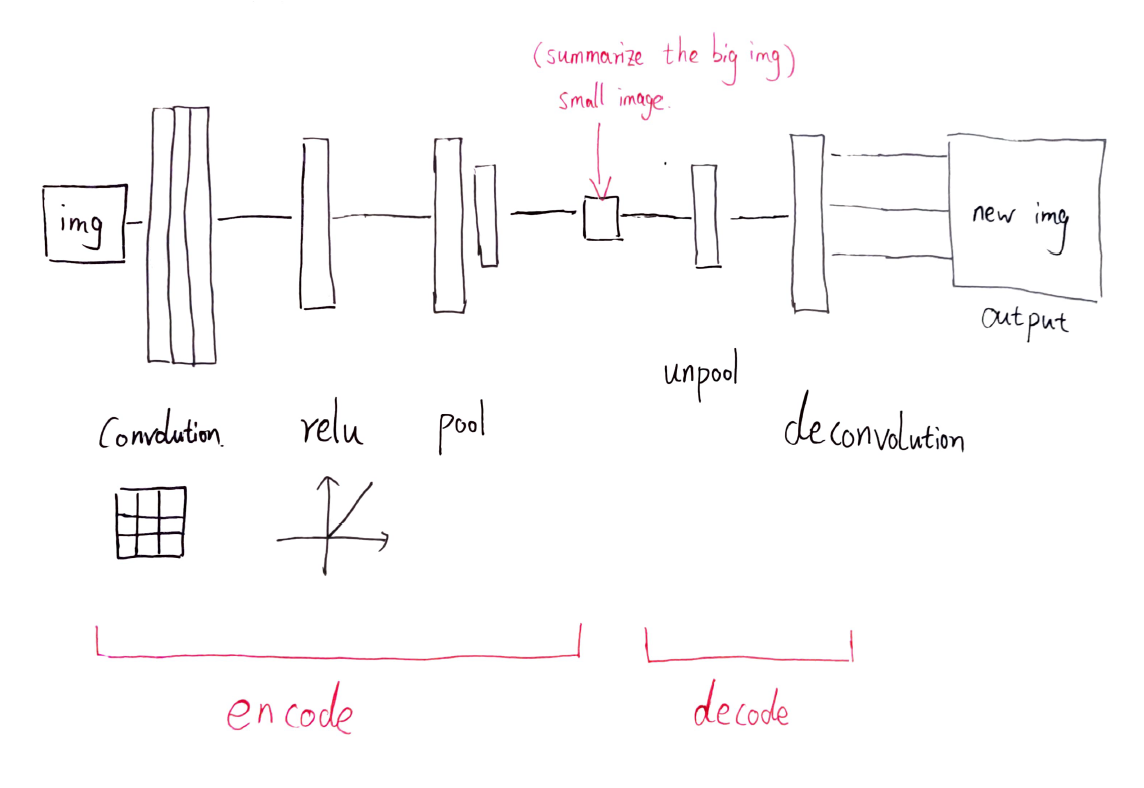 (summarize the big img)
small image.
img
new img
output
unpool
Convolution.
relu
pool
deconvolution
encode
decode